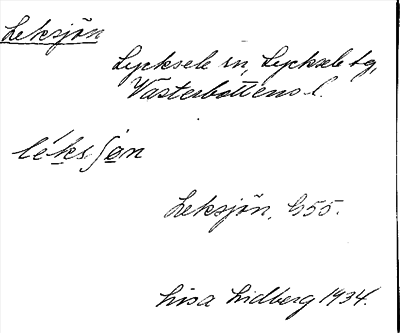 Leksjön
Lycksele sn, Lycksele tg,
Västerbottens l.
léksʃøn
Leksjön, G55.
Lisa Lidberg 1934.